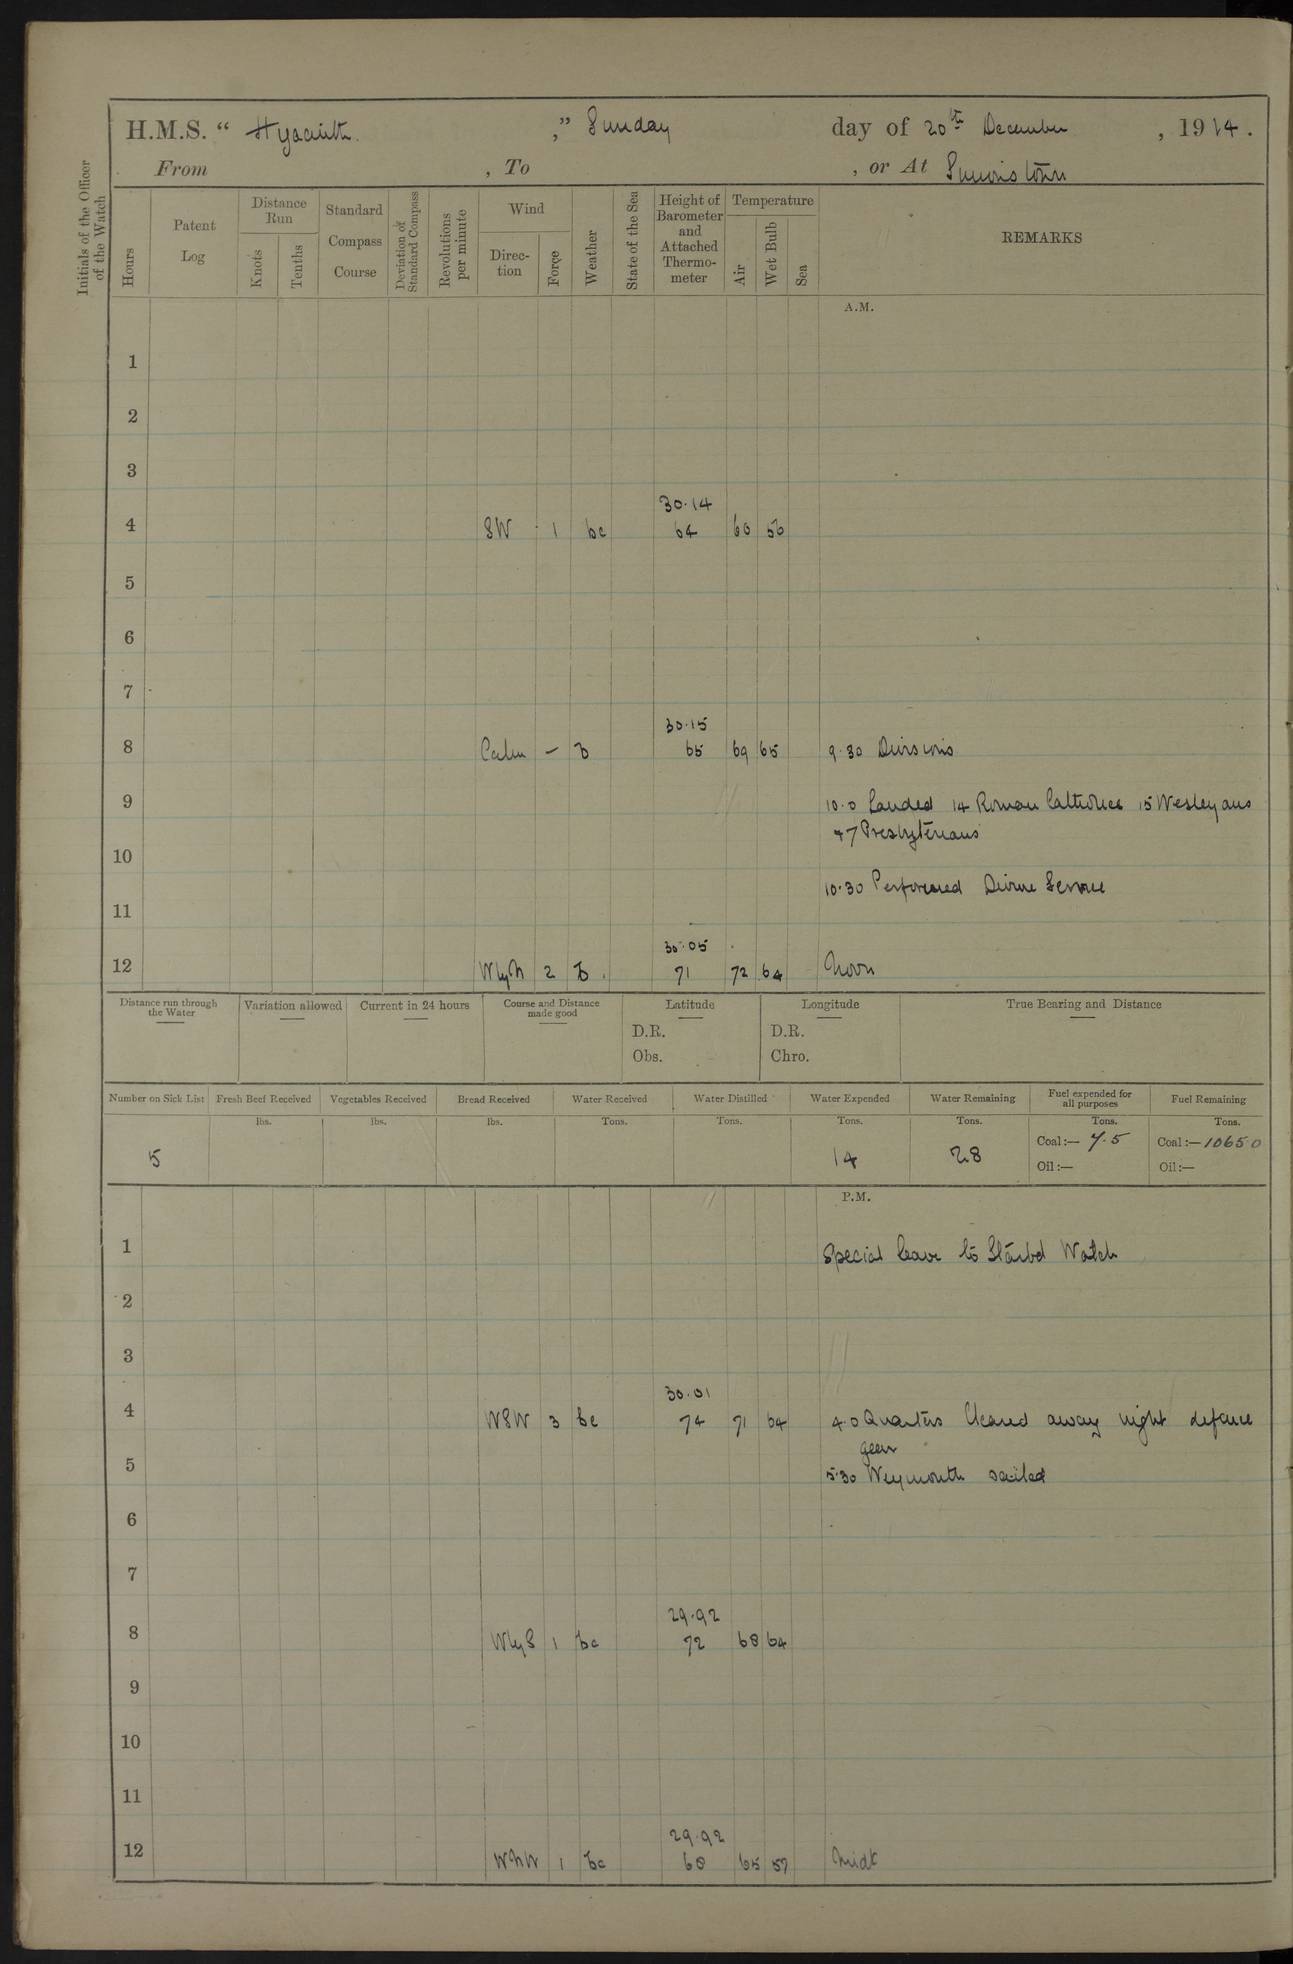 H.M.S. “ Hyacinth ,” Sunday day of 20th December , 1914.
From , To , or At Simonstown
Initials of the Officer of the Watch
Hours
Patent Log
Distance Run
Knots
Tenths
Standard Compass Course
Deviation of Standard Compass
Revolutions per minute
Wind
Direc-tion
Force
Weather
State of the Sea
Height of Barometer and Attached Thermo-meter
Temperature
Air
Wet Bulb
Sea
REMARKS
A.M.
1
2
3
30.14
4 SW 1 bc 64 60 56
5
6
7
30.15
8 Calm — b 65 69 65 9.30 Divisions
9 10.0 Landed 14 Roman Catholics 15 Wesleyans
47 Presbyterians
10
10.30 Performed Divine Service
11
30.05
12 WlyN 2 b. 71 72 64 Noon
Distance run through the Water
Variation allowed
Current in 24 hours
Course and Distance made good
Latitude
D.R.
Obs.
Longitude
D.R.
Chro.
True Bearing and Distance
Number on Sick List
Fresh Beef Received
Vegetables Received
Bread Received
Water Received
Water Distilled
Water Expended
Water Remaining
Fuel expended for all purposes
Fuel Remaining
lbs. lbs. lbs. Tons. Tons. Tons. Tons. Tons. Tons.
5 14 28 Coal:— 7.5 Coal:— 1065.0
Oil:— Oil:—
P.M.
1 Special leave to Starbd Watch
2
3
30.01
4 WSW 3 bc 74 71 64 4.0 Quarters Cleared away night defence
gear
5 5.30 Weymouth sailed
6
7
29.92
8 WlyS 1 bc 72 68 64
9
10
11
29.92
12 WNW 1 bc 68 65 57 Midt